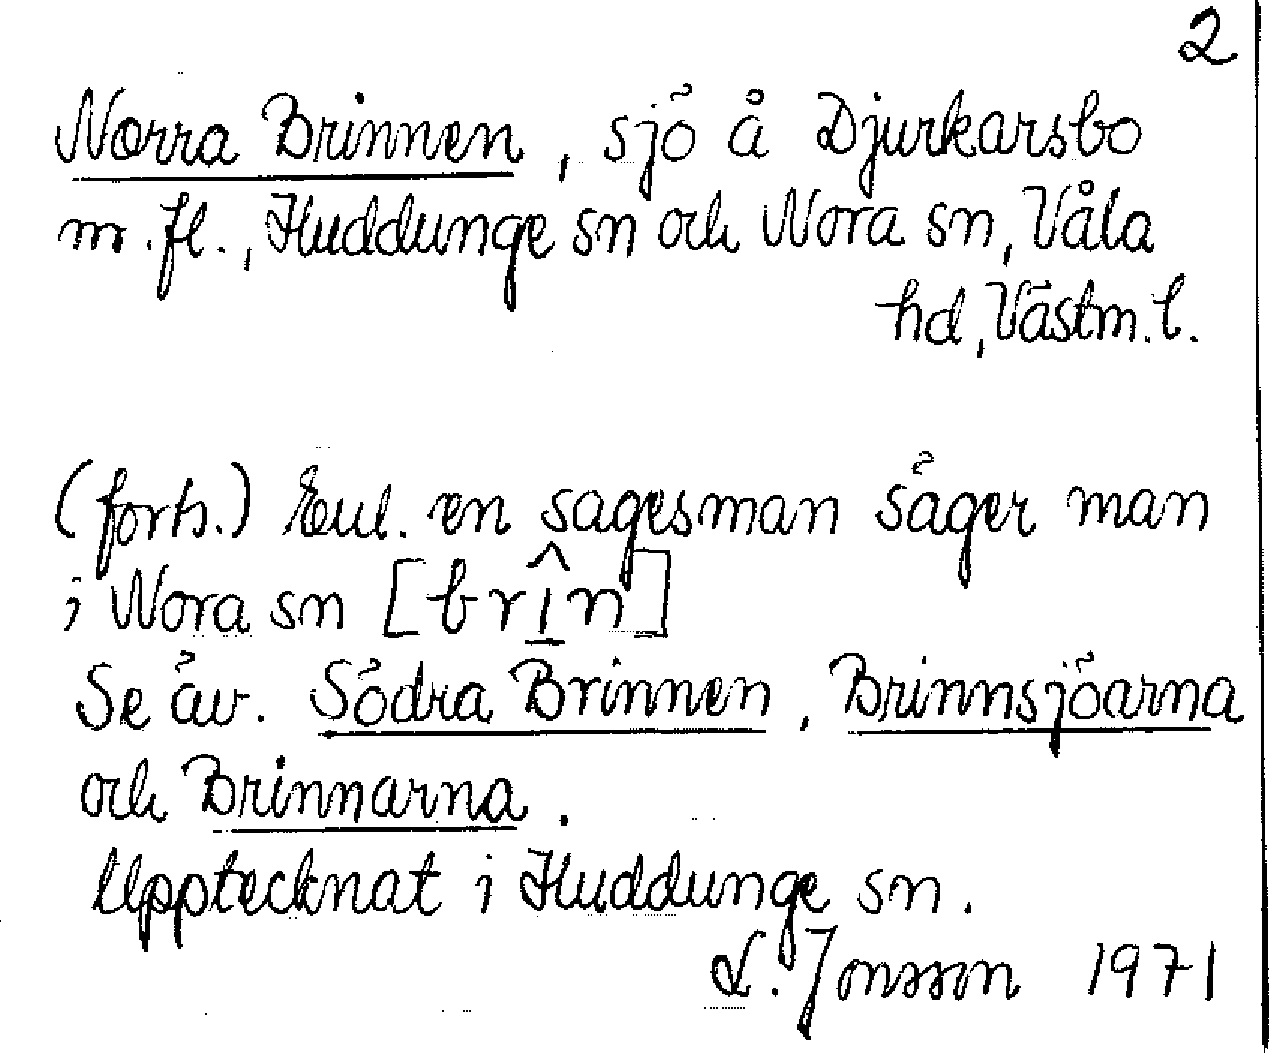 2
Norra Brinnen, sjö å Djurkarsbo
m.fl., Huddunge sn och Nora sn, Våla
hd, Västm. l.
(forts.) Enl. en sagesman säger man
i Nora sn [brı̲̂n]
Se äv. Södra Brinnen, Brinnsjöarna
och Brinnarna.
Upptecknat i Huddunge sn.
L. Jonsson 1971